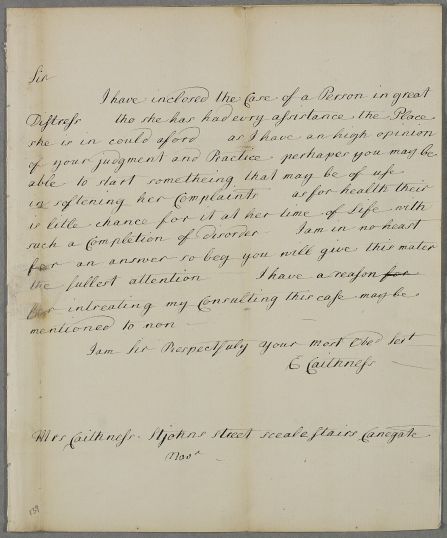 Sir
I have inclosed the Case of a Person in great
Distress tho she has had evry assistance the Place
she is in could aford as I have an high opinion
of your judgment and Practice perhapes you may be
able to start sometheing that may be of use
in softening her Complaints as for health their
is litle chance for it at her time of Life with
such a Completion of disorder I am in no heast
for an answer so beg you will give this mater
the fullest attention I have a reason for
for intreating my Consulting this case may be
mentioned to non
I am Sir Respectfuly your most Obed Sert
E Caithness
Mrs Caithness. St johns street sceale stairs Canegate
Novr
139